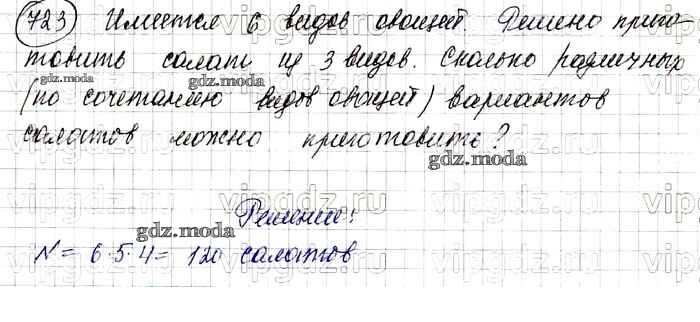 723 Имеется 6 видов овощей. Решено приго-
товить салат из 3 видов. Сколько различных
(по сочетанию видов овощей) вариантов
салатов можно приготовить?
Решение:
N = 6·5·4 = 120 салатов
gdz.moda
gdz.moda
gdz.moda
gdz.moda
gdz.moda
vipgdz.ru